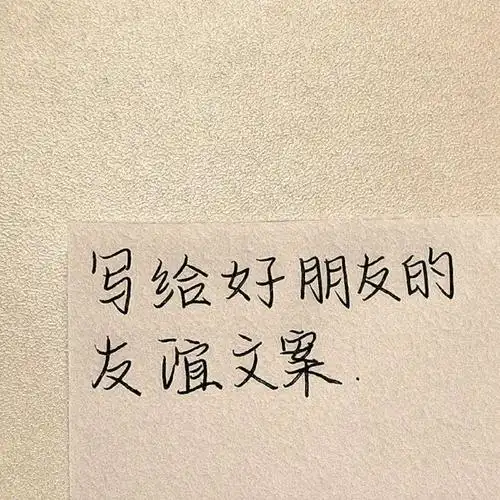 写给好朋友的
友谊文案.